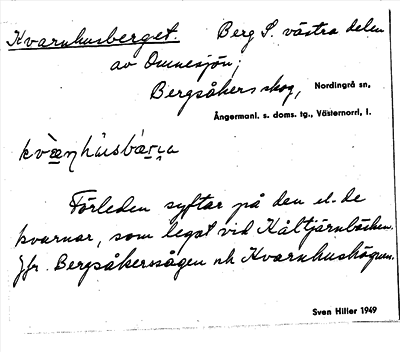 Kvarnhusberget. Berg S. västra delen
av Omnesjön;
Bergsåkers skog, Nordingrå sn,
Ångermanl. s. doms. tg., Västernorrl. l.
kvæ̀ṇhùsbæ̀rɡa
Förleden syftar på den el. de
kvarnar, som legat vid Kåltjärnbäcken.
Jfr. Bergsåkerssågen och Kvarnhushögen.
Sven Hiller 1949